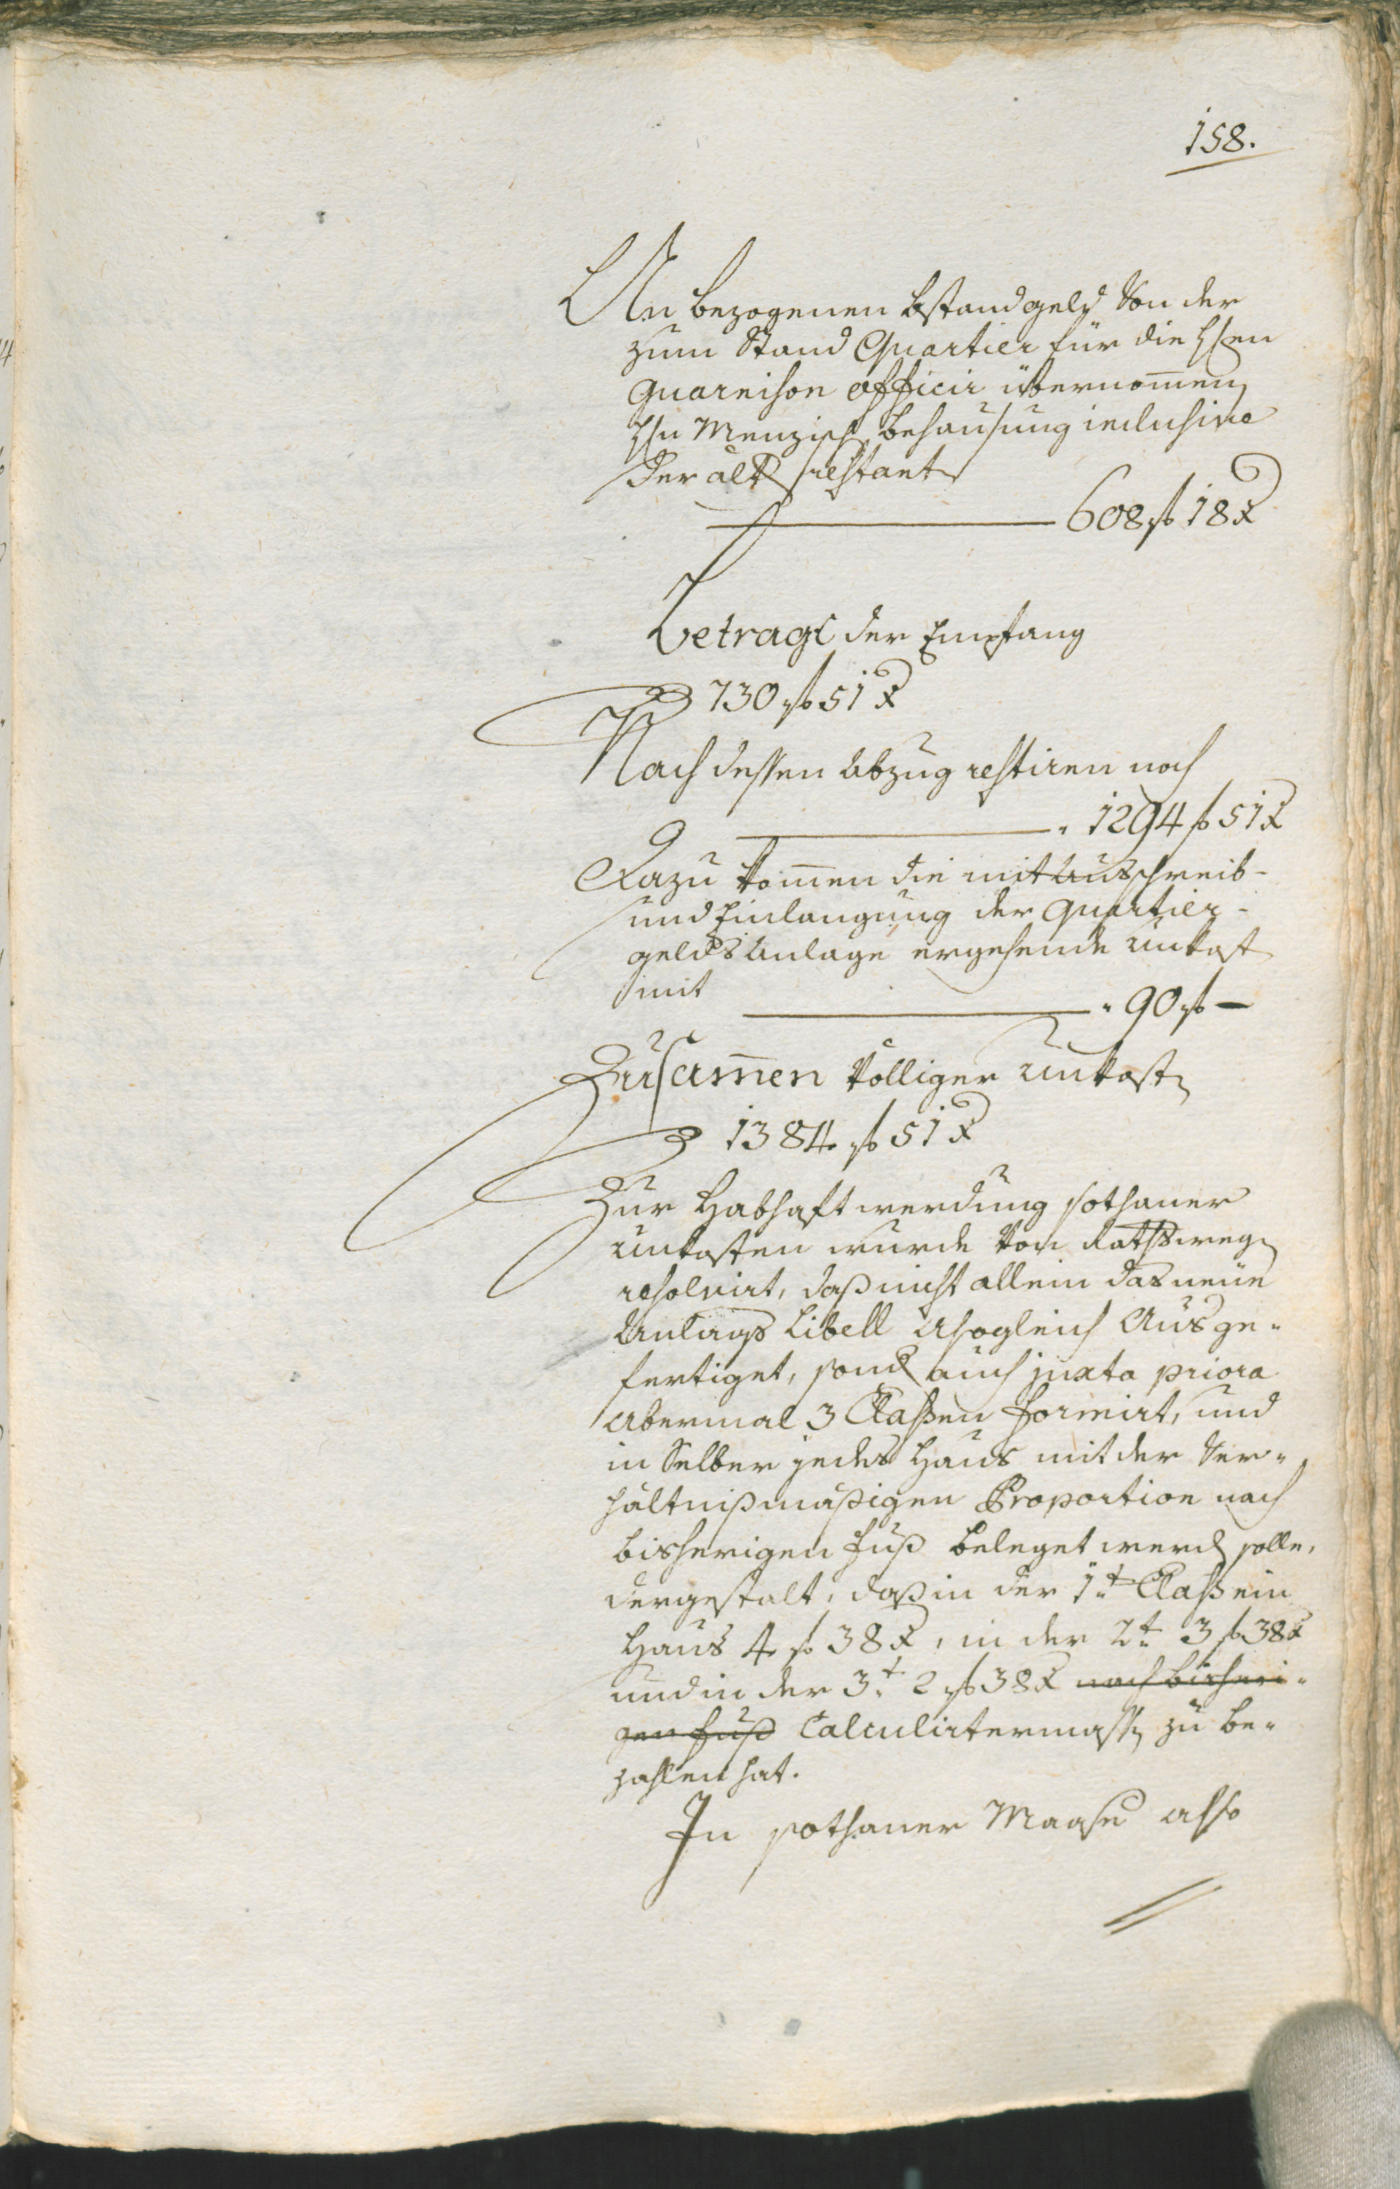 158.
An bezogenen bstandgeld von der
zum Stand Quartier für die Hen
Guarnison officir übernom̄en
Hn Menzisch behausung inclusive
der alt restant
608 fl 18 x
Betragt der Empfang
730 fl 51 x
Nach dessen Abzug restiren noch
1294 fl 51 x
Dazu kom̄en die mit Ausschreib-
und Einlangung der Quartier-
gelds Anlage ergehende Unkost
mit
90 fl —
Zusam̄en völliger Unkost
1384 fl 51 x
Zur Habhaftwerdung sothaner
Unkosten wurde von Rathswegen
resolvirt, daß nicht allein das neüe
Anlags Libell alsogleich Ausge-
fertiget, sond auch juxta priora
abermal 3 Classen formirt, und
in Selber jedes Haus mit der Ver-
hältnißmäßigen Proportion nach
bisherigen Fuß beleget werd solle,
dergestalt, daß in der 1t Class ein
Haus 4 fl 38 x, in der 2t 3 fl 38 x
und in der 3t 2 fl 38 x nach bisheri-
gen Fuß Calculirtermassen zu be-
zahlen hat.
In sothaner Maase also